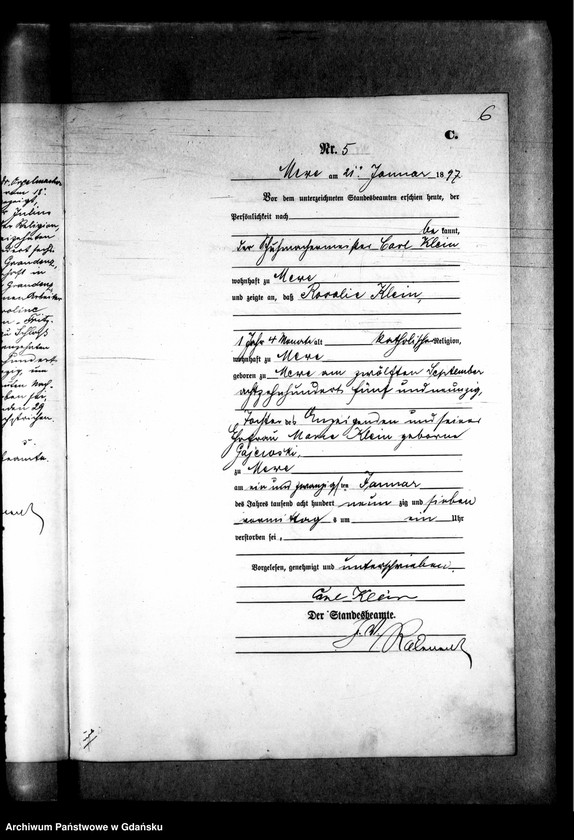 6
C.
Nr. 5
Mewe am 21. Januar 1897
Vor dem unterzeichneten Standesbeamten erschien heute, der
Persönlichkeit nach
be kannt,
der Schuhmachermeister Carl Klein
wohnhaft zu Mewe
und zeigte an, daß Rosalie Klein,
1 Jahr 4 Monate alt katholischer Religion,
wohnhaft zu Mewe
geboren zu Mewe am zwölften September
achtzehnhundert fünf und neunzig,
Tochter des Anzeigenden und seiner
Ehefrau Klein geborne
Gajewski,
zu Mewe
am ein und zwanzigsten Januar
des Jahres tausend acht hundert neun zig und sieben
vormittags um ein Uhr
verstorben sei,
Vorgelesen, genehmigt und unterschrieben.
Carl Klein
Der Standesbeamte.
J. V.
Religion,
Graudenz,
in
Graudenz
den 29
Archiwum Państwowe w Gdańsku